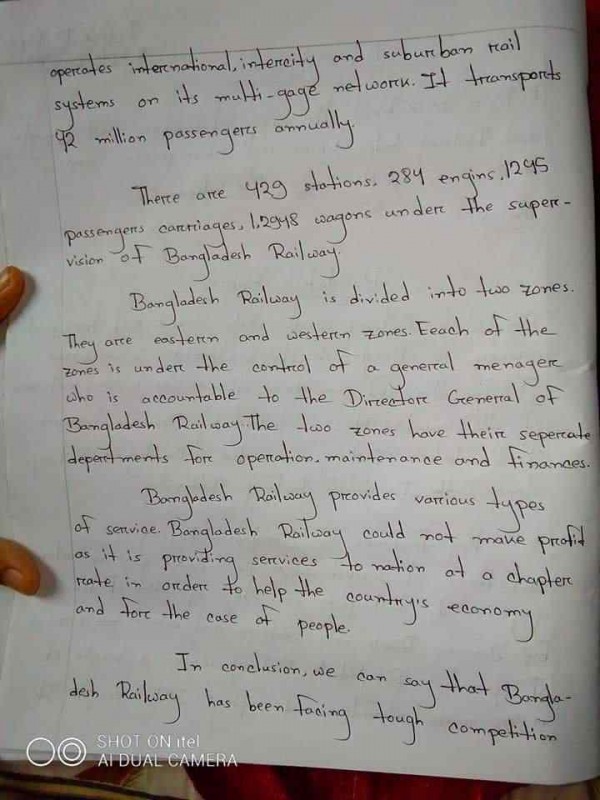 operates international, intercity and suburban rail
systems on its multi-gage network. It transports
42 million passengers annually.
There are 429 stations, 284 engins, 1245
passengers carriages, 1,2948 wagons under the super-
vision of Bangladesh Railway.
Bangladesh Railway is divided into two zones.
They are eastern and western zones. Eeach of the
zones is under the control of a general menager
who is accountable to the Director General of
Bangladesh Railway. The two zones have their seperate
depertments for operation. maintenance and finances.
Bangladesh Railway provides various types
of service. Bangladesh Railway could not make profit
as it is providing services to nation at a chapter
rate in order to help the country's economy
and for the case of people.
In conclusion, we can say that Bangla-
desh Railway has been facing tough competition
SHOT ON itel
AI DUAL CAMERA